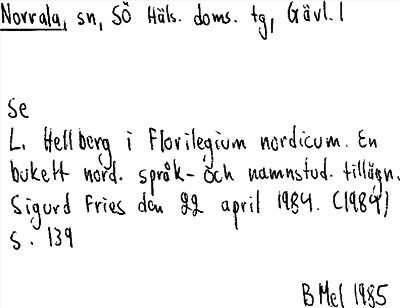 Norrala, sn, SÖ Häls. doms. tg, Gävl. l
Se
L. Hellberg i Florilegium nordicum. En
bukett nord. språk- och namnstud. tillägn.
Sigurd Fries den 22 april 1984. (1984)
s. 139
B Mel 1985